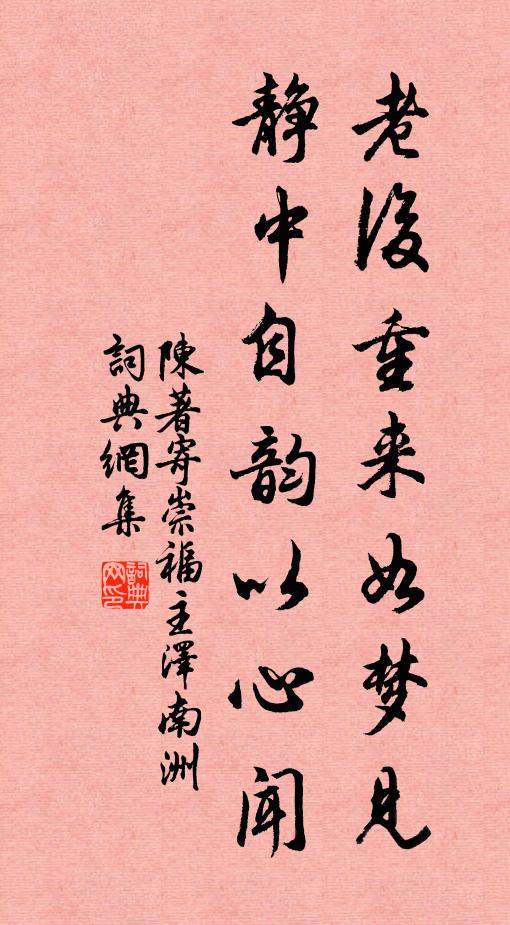 老後重来如梦見
静中自韵以心闻
陳著寄崇福主澤南洲
詞典網集
詞典
网印